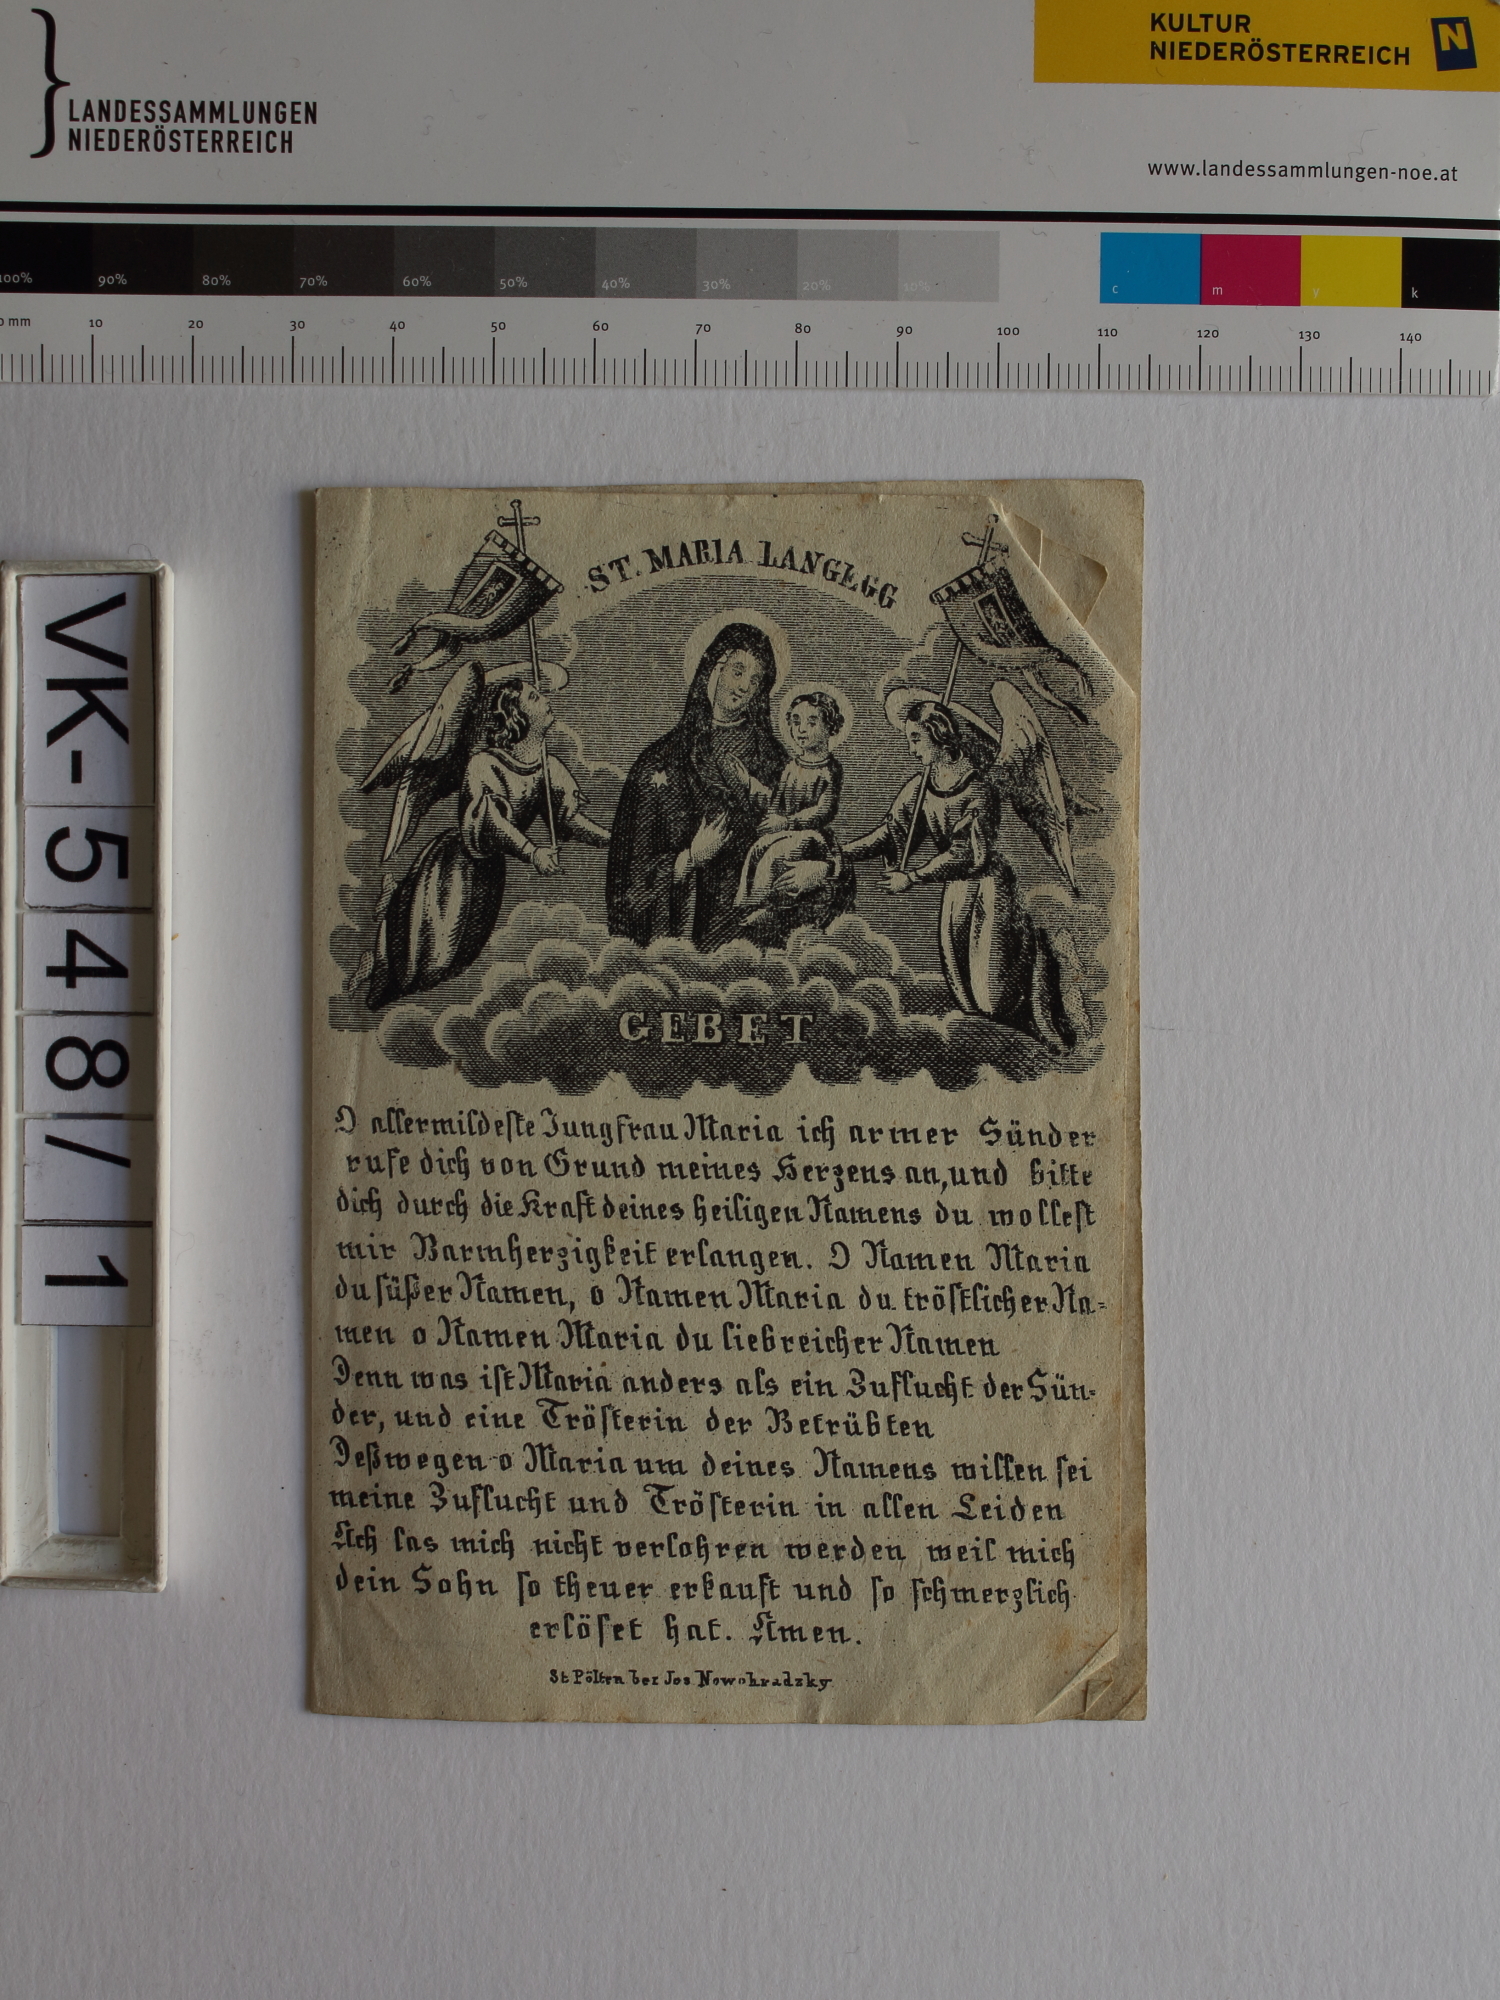 KULTUR
NIEDERÖSTERREICH
N
LANDESSAMMLUNGEN
NIEDERÖSTERREICH
www.landessammlungen-noe.at
100% 90% 80% 70% 60% 50% 40% 30% 20% 10% c m y k
0 mm 10 20 30 40 50 60 70 80 90 100 110 120 130 140
VK-5487/1
ST. MARIA LANGEGG
GEBET
O allermildeste Jungfrau Maria ich armer Sünder
rufe dich von Grund meines Herzens an, und bitte
dich durch die Kraft deines heiligen Namens du wollest
mir Barmherzigkeit erlangen. O Namen Maria
du süßer Namen, o Namen Maria du tröstlicher Na=
men o Namen Maria du liebreicher Namen
Denn was ist Maria anders als ein Zuflucht der Sün-
der, und eine Trösterin der Betrübten
Deßwegen o Maria um deines Namens willen sei
meine Zuflucht und Trösterin in allen Leiden
Ach las mich nicht verlohren werden weil mich
dein Sohn so theuer erkauft und so schmerzlich
erlöset hat. Amen.
St Pölten bei Jos Nowohradzky